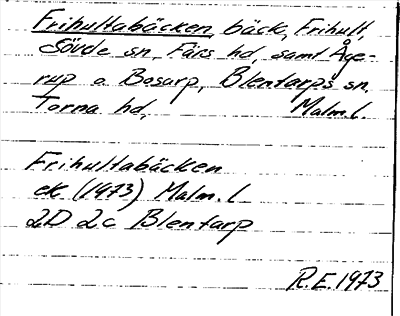 Frihultabäcken, bäck, Frihult,
Sövde sn, Färs hd, samt Åge-
rup o. Bosarp, Blentarps sn,
Torna hd, Malm.l.
Frihultabäcken
ek (1973) Malm. l
2D 2c Blentarp
R.E. 1973